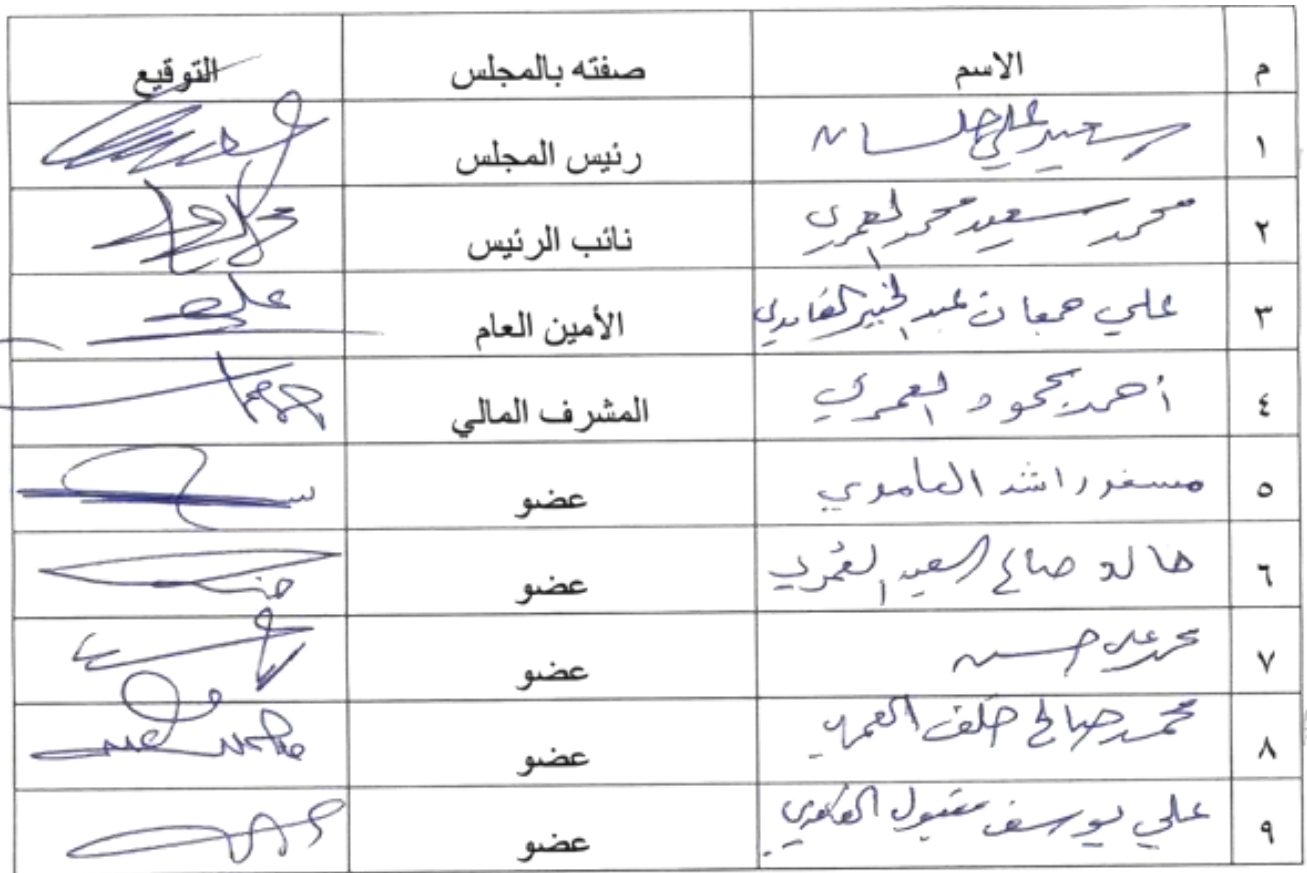 م الاسم صفته بالمجلس التوقيع
١ سعيد علي رئيس المجلس
٢ محمد سعيد محمد العمري نائب الرئيس
٣ علي جمعان عبد الخبير الغامدي الأمين العام
٤ أحمد محمود العمري المشرف المالي
٥ مسفر راشد الغامدي عضو
٦ خالد صالح السعيد العمري عضو
٧ محمد علي حسين عضو
٨ محمد صالح خلف العمري عضو
٩ علي يوسف مقبول الغامدي عضو